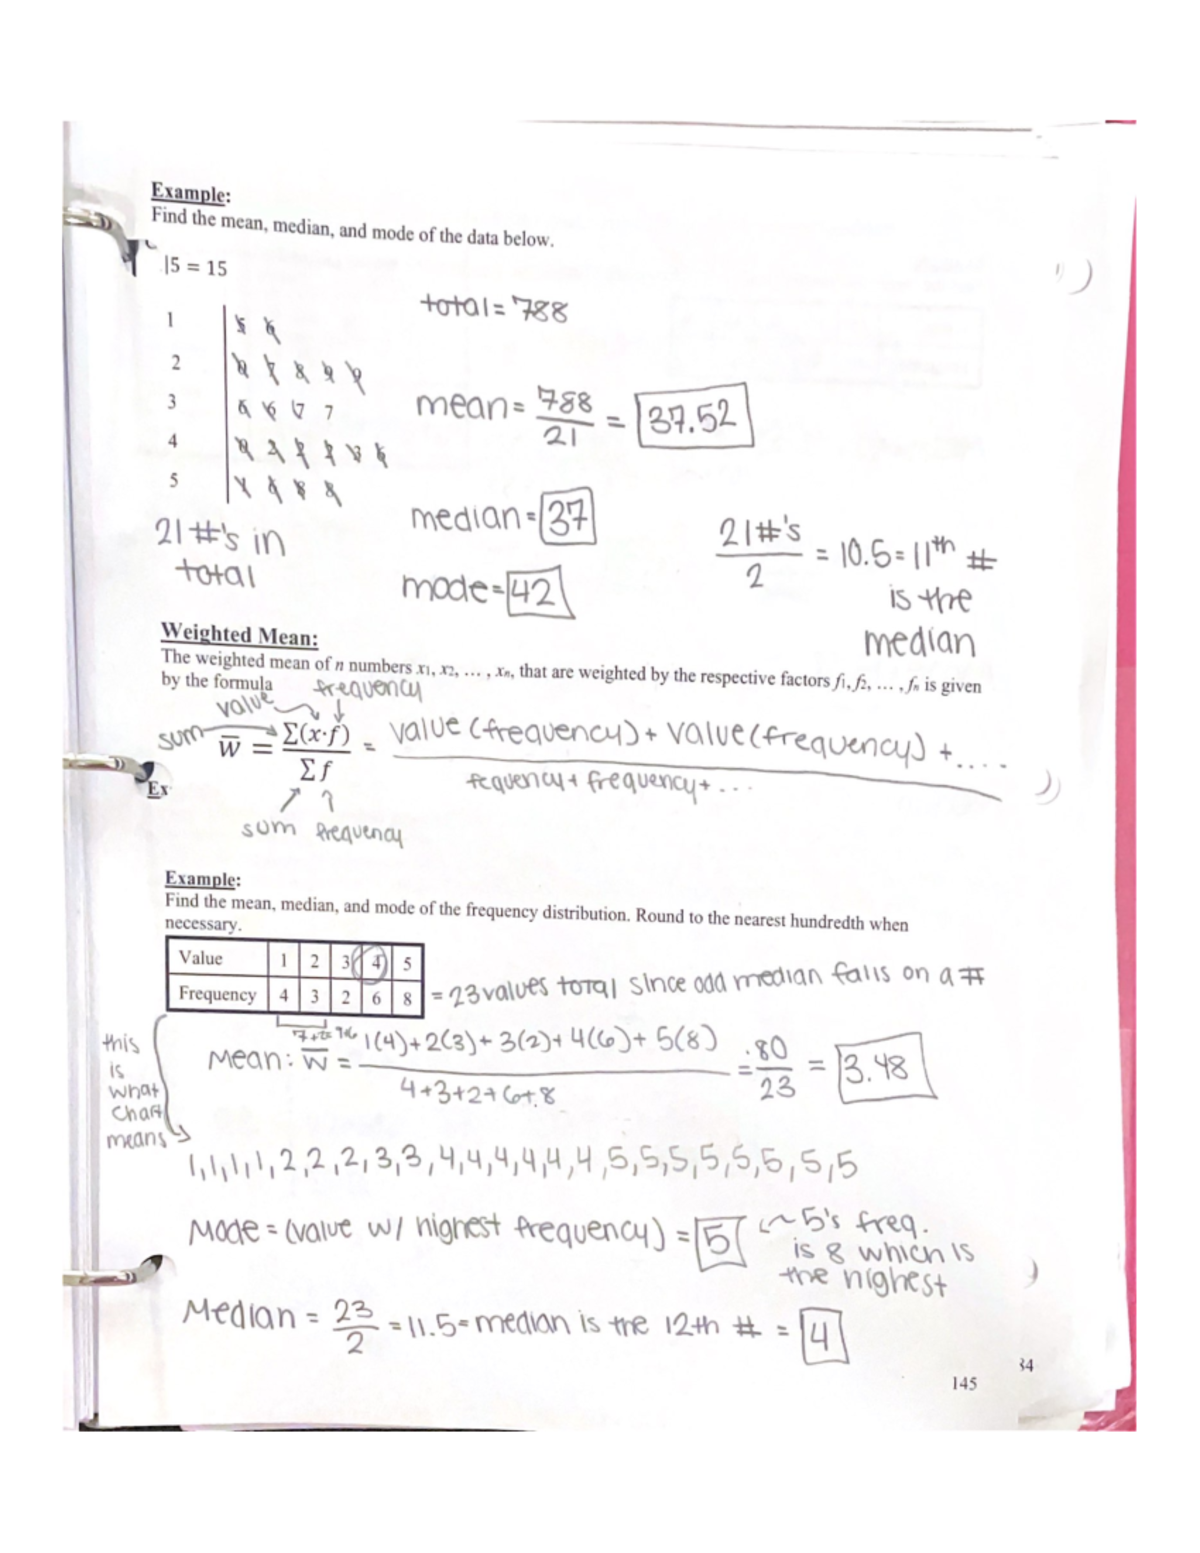 Example:
Find the mean, median, and mode of the data below.
|5 = 15
total = 788
1
2
3 7 7
4
5
mean = 788/21 = 37.52
median = 37
mode = 42
21 #'s in
total
21 #'s / 2 = 10.5 = 11th #
is the
median
Weighted Mean:
The weighted mean of n numbers x1, x2, … , xn, that are weighted by the respective factors f1, f2, … , fn is given
by the formula
frequency
value
sum
w̅ = Σ(x·f) / Σf = value (frequency) + value (frequency) + .... / fequency + frequency + ...
sum frequency
Ex
Example:
Find the mean, median, and mode of the frequency distribution. Round to the nearest hundredth when
necessary.
Value 1 2 3 4 5
Frequency 4 3 2 6 8 = 23 values total since odd median falls on a #
Mean: w̅ = 1(4) + 2(3) + 3(2) + 4(6) + 5(8) / 4+3+2+6+8 = 80/23 = 3.48
this
is
what
chart
means
1,1,1,1,2,2,2,3,3,4,4,4,4,4,4,5,5,5,5,5,5,5,5
Mode = (value w/ highest frequency) = 5 5's freq.
is 8 which is
the highest
Median = 23/2 = 11.5 = median is the 12th # = 4
34
145